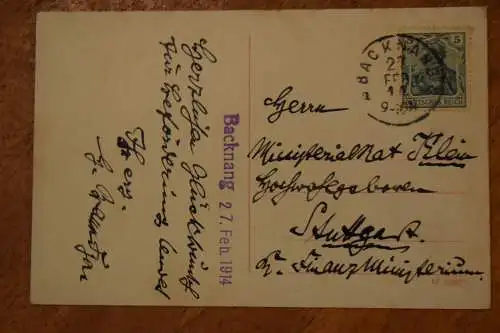 Herzliche Glückwünsche
zur Beförderung sendet
Ihr erg.
Backnang 27. Feb. 1914
BACKNANG
27
FEB
14
9-
5
DEUTSCHES REICH
Herrn
Ministerialrat Klein
Hochwohlgeboren
Stuttgart.
K. Finanzministerium.